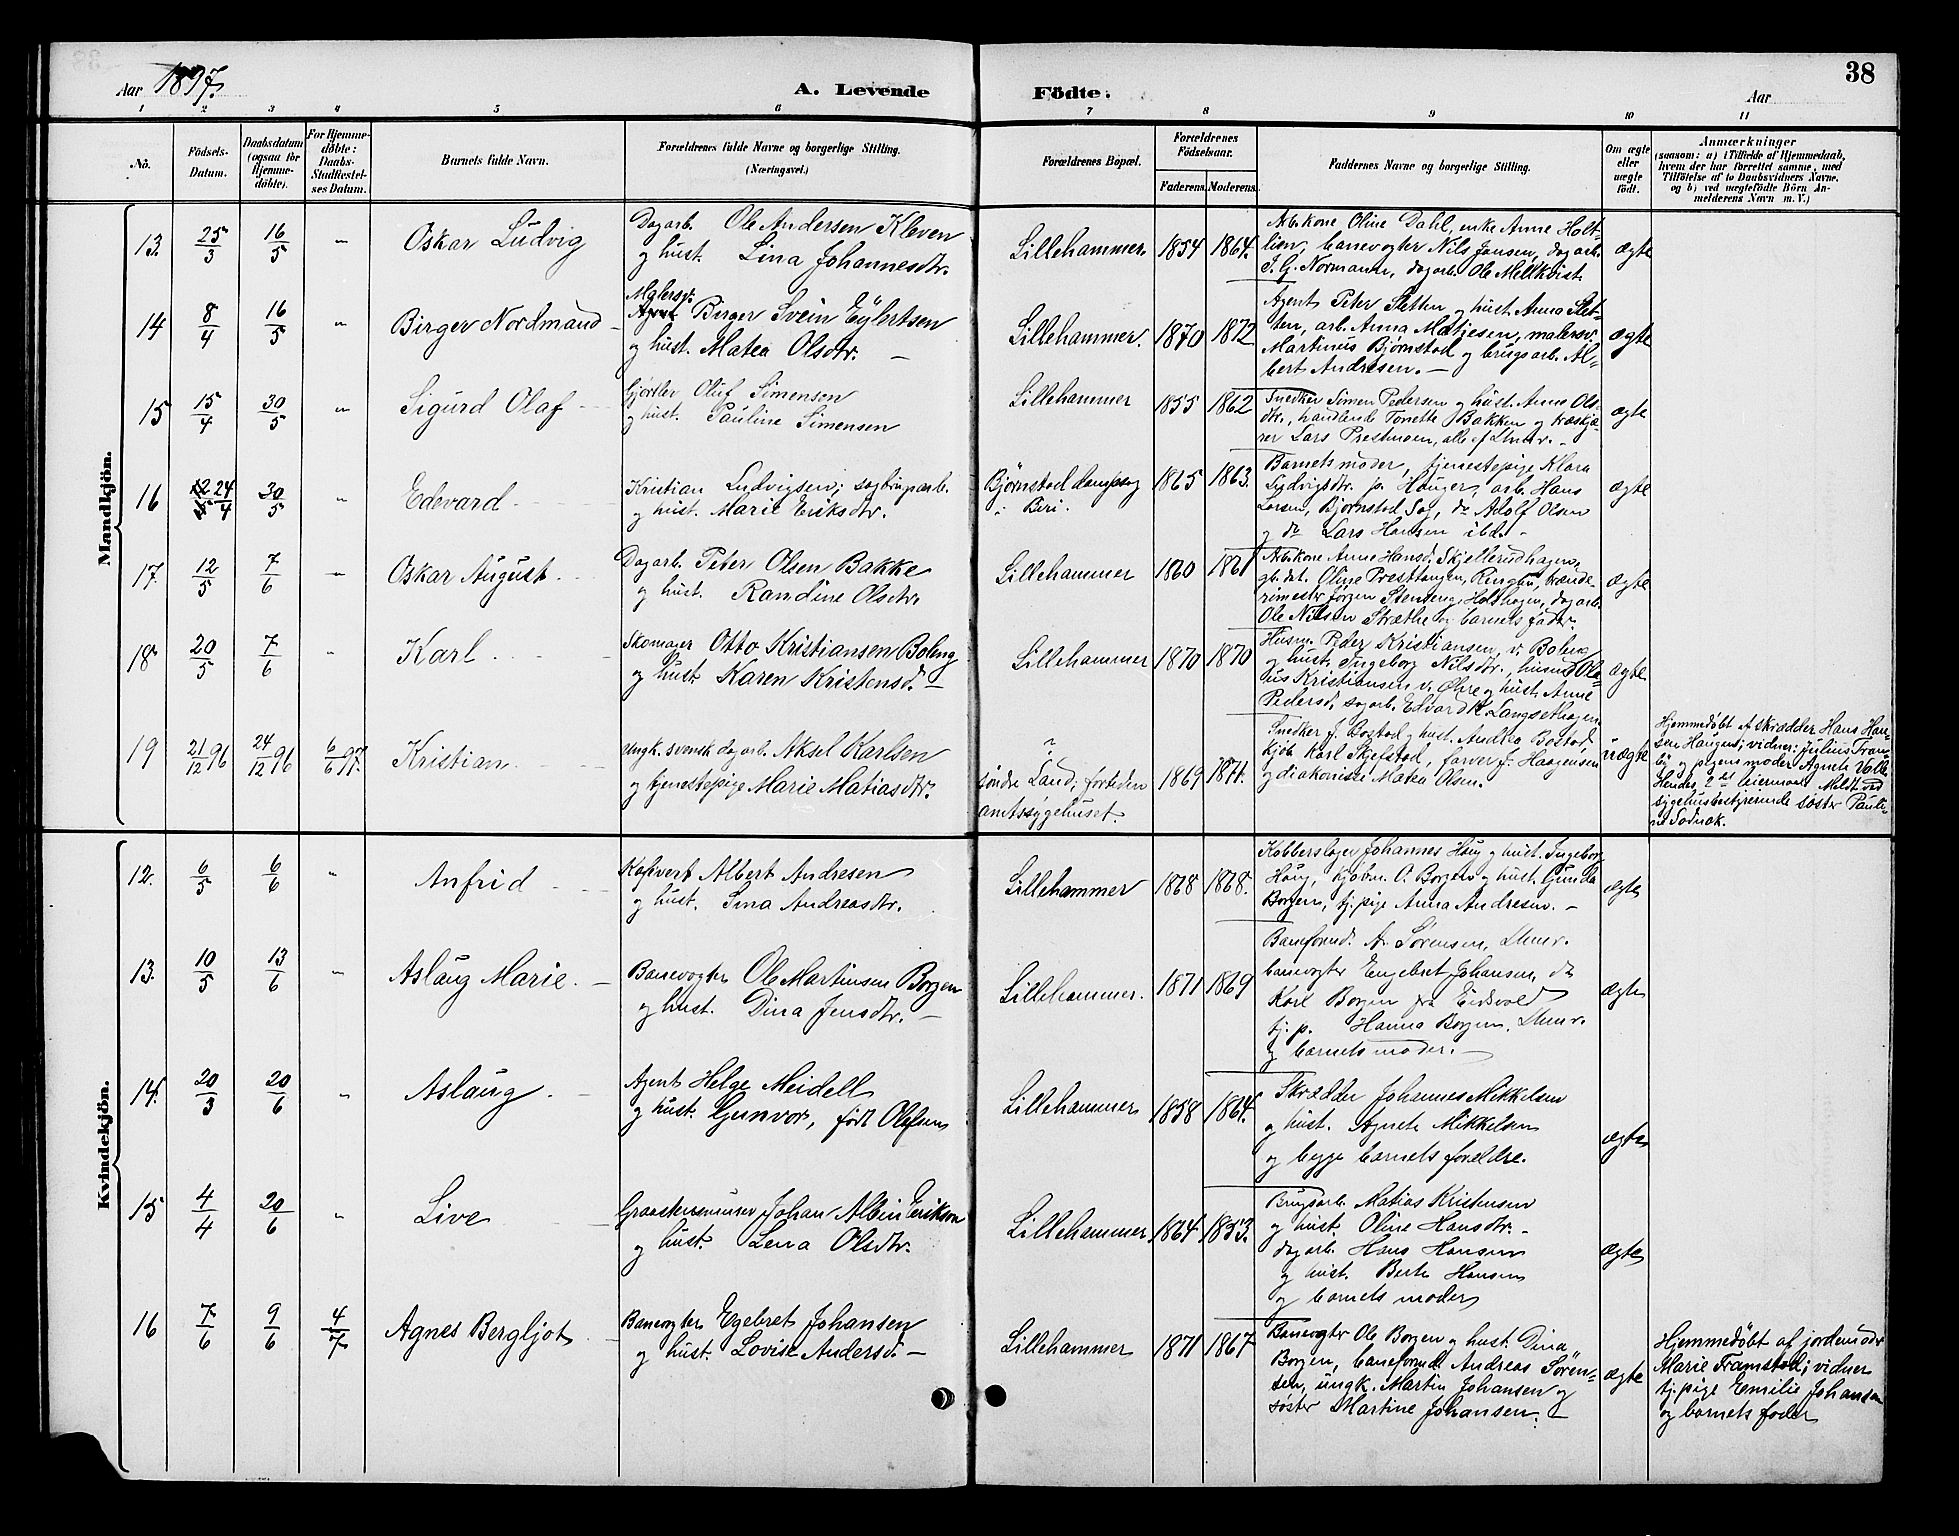 38
Aar 1897.
A. Levende Födte.
Aar
1 2 3 4 5 6 7 8 9 10 11
No.
Födsels-Datum.
Daabsdatum (ogsaa for Hjemme-döbte).
For Hjemme-döbte: Daabs-Stadfæstel-ses Datum.
Barnets fulde Navn.
Forældrenes fulde Navne og borgerlige Stilling. (Næringsvei.)
Forældrenes Bopæl.
Forældrenes Födselsaar.
Faderens. Moderens.
Faddernes Navne og borgerlige Stilling.
Om ægte eller uægte født.
Anmærkninger
(saasom: a) i Tilfælde af Hjemmedaab, hvem der har forrettet samme, med Tilföielse af to Daabsvidners Navne, og b) ved uægtefödte Börn An-melderens Navn m. V.)
Mandkjön.
13. 25/3 16/5 " Oskar Ludvig
Dagarb. Ole Andersen Kleven
og hust. Lina Johannesdtr.
Lillehammer. 1854 1864.
Arb.kone Oline Dahl, enke Anne Holt-
lien, banevogter Nils Jansen, dagarb.
J. G. Normann, dagarb. Ole Mellkvist.
ægte
14 8/4 16/5 " Birger Nordmand
Malersv. Birger Svein Eyhrtsen
og hust. Matea Olsdtr. —
Lillehammer. 1870 1872
Agent Peter Sletten og hust. Anna Slet-
ten, arb. Anna Matjesen, malersv.
Martinus Bjørnstad og brugsarb. Al-
bert Andresen. —
ægte
15 15/4 30/5 " Sigurd Olaf
Gjørtler Oluf Simensen
og hust. Pauline Simensen
Lillehammer 1855 1862
Snedker Simen Pedersen og hust. Anne Ols-
dtr., handlende Tonette Bakken og træskjæ-
rer Lars Prestmoen, alle af Lhmr. -
ægte
16 24/4 30/5 " Edevard
Kristian Ludvigsen, sagbrugarb.
og hust. Marie Eriksdtr.
Bjørnstad dampsag
i Biri. 1865 1863.
Barnets moder, tjenestepige Klara
Ludvigsdtr. p. Hauger, arb. Hans
Larsen, Bjørnstad Sag, do Adolf Olsen
og do Lars Hansen ibd. -
ægte
17. 12/5 7/6 " Oskar August
Dagarb. Peter Olsen Bakke
og hust. Randine Olsdtr.
Lillehammer 1860 1861
Arb.kone Anne Hansd. Skjellerudhagen,
gb.dat. Oline Presttangen, Ringbu, brænde-
rimester Jørgen Stenseng Holthagen, dagarb.
Ole Nilsen Stræthe og barnets fader.
ægte
18 20/5 7/6 " Karl
Skomager Otto Kristiansen Boleng
og hust. Karen Kristensd. —
Lillehammer 1870 1870
Husm. Peder Kristiansen v. Boleng
og hust. Ingeborg Nilsdtr., husm. Ola-
us Kristiansen v. Øhre og hust. Anne
Pedersd, sagarb. Edvard K. Langsethagen.
ægte
19 21/12 96 24/12 96 6/6 97. Kristian
ungk. svensk dagarb. Aksel Karlsen
og tjenestepige Marie Matiasdtr.
?
søndre Land; fortiden
amtssygehuset. 1869 1871.
Snedker J. Bostad og hust. Andrea Bostad,
kjøb. Karl Skjefstad, farver J. Haagensen
og diakonisse Matea Olsen.
uægte
Hjemmedøbt af skrædder Hans Han-
sen Haugen; vidner: Julius Fram-
og pigens moder Agnete Volle
Hendes 2det leiermaal. Meldt ved
sygehusbestyrende søster Pauli-
ne
Kvindekjön.
12. 6/5 6/6 " Anfrid
Albert Andresen
og hust. Sina Andreasdtr.
Lillehammer 1868 1868.
Kobberslager Johannes Haug og hust. Ingeborg
Haug, kjøbm. O. Borgen og hust. Gunda
Borgen, tj.pige Anna Andresen. —
ægte
13. 10/5 13/6 " Aslaug Marie.
Banevogter Ole Martinsen Borgen
og hust. Dina Jensdtr. —
Lillehammer. 1871 1869
Baneformd. A. Sørensen, Lhmr.
banevogter Engebret Johansen, do
Karl Borgen fra Eidsvold
tj.p. Hanna Borgen, Lhmr.
og barnets moder. —
ægte
14. 20/3 20/6 " Aslaug.
Agent Helge Meidell
og hust. Gunvor, født Olafsen
Lillehammer 1858 1864.
Skrædder Johannes Mikkelsen
og hust. Agnete Mikkelsen
og begge barnets forældre.
ægte
15 4/4 20/6 " Live
Graastensmurer Johan Albin Erikson
og hust. Lena Olsdtr.
Lillehammer 1864 1853.
Brugsarb. Matias Kristensen
og hust. Oline Hansdtr. -
dagarb. Hans Hansen
og hust. Berte Hansen
og barnets moder
ægte
16 7/6 9/6 4/7 Agnes Bergljot
Banevogter Egebret Johansen
og hust. Lovise Andersd. —
Lillehammer 1871 1867
Banevogter Ole Borgen og hust. Dina
Borgen, baneformd Andreas Sören-
sen, ungk. Martin Johansen og
søster Martine Johansen. —
ægte
Hjemmedøbt af jordemoder
Marie Framstad; vidner
tj.pige Emilie Johansen
og barnets fader